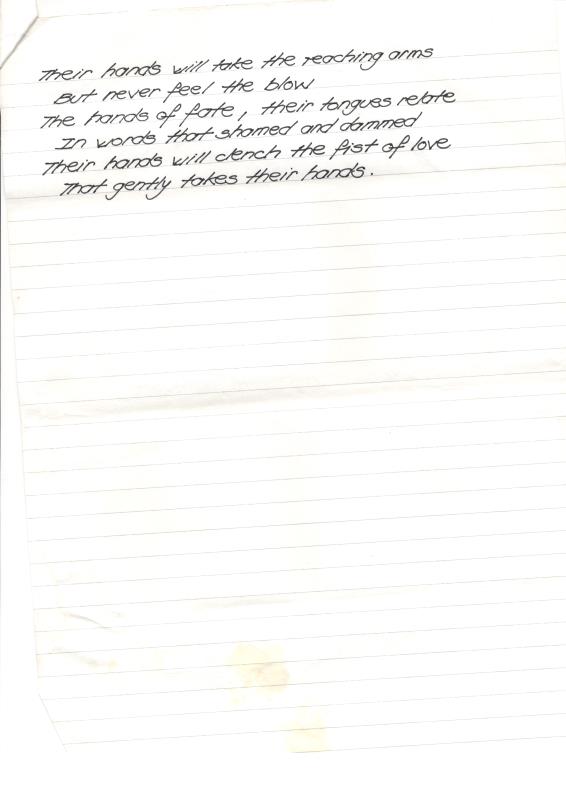 Their hands will take the reaching arms
But never feel the blow
The hands of fate, their tongues relate
In words that shamed and dammed
Their hands will clench the fist of love
That gently takes their hands.